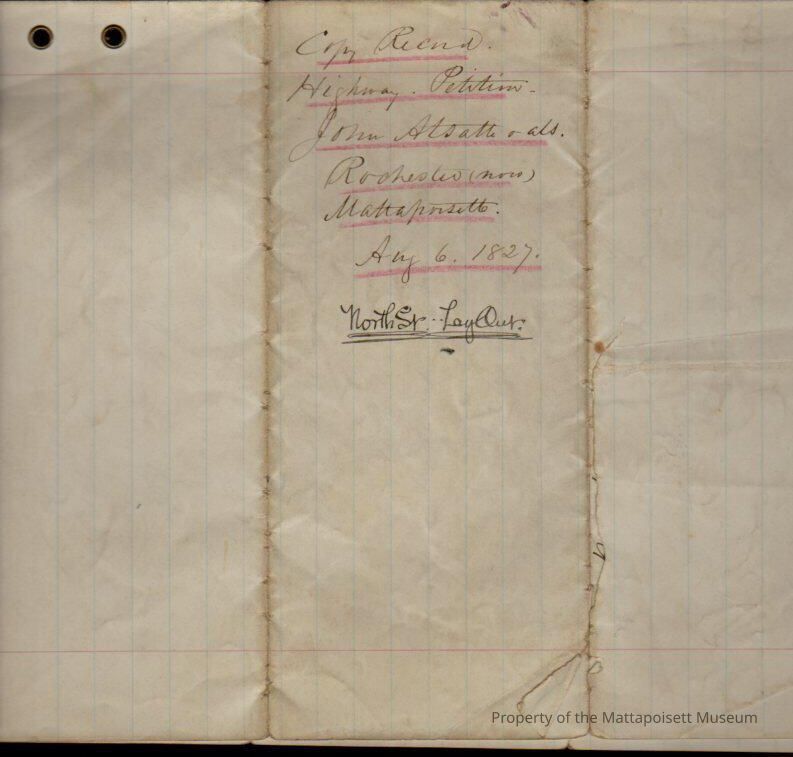 Copy Record.
Highway. Petition.
John Atsatt & als.
Rochester (now)
Mattapoisett.
Aug 6. 1827.
North St. Lay Out.
Property of the Mattapoisett Museum